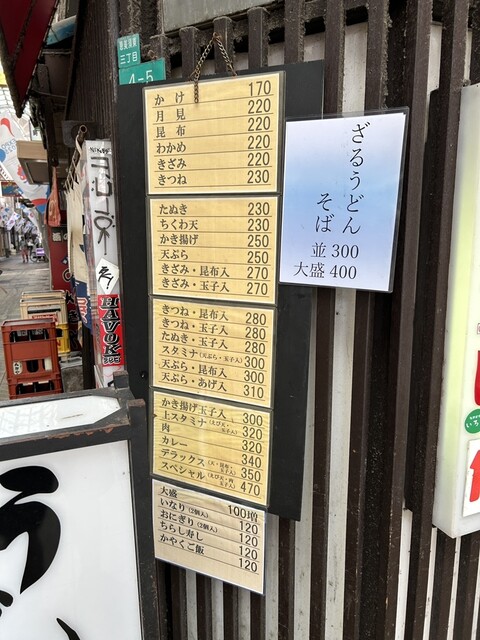 三丁目
4-5
かけ 170
月見 220
昆布 220
わかめ 220
きざみ 220
きつね 230
たぬき 230
ちくわ天 230
かき揚げ 250
天ぷら 250
きざみ・昆布入 270
きざみ・玉子入 270
きつね・昆布入 280
きつね・玉子入 280
たぬき・玉子入 280
スタミナ(天ぷら・玉子入) 300
天ぷら・昆布入 300
天ぷら・あげ入 310
かき揚げ玉子入 300
上スタミナ(えび天・玉子入) 320
肉 320
カレー 340
デラックス(天・昆布・玉子入) 350
スペシャル(えび天・肉玉子入) 470
大盛 100増
いなり(2個入) 120
おにぎり(2個入) 120
ちらし寿し 120
かやくご飯 120
ざるうどん
そば
並300
大盛400
HAVOK
う